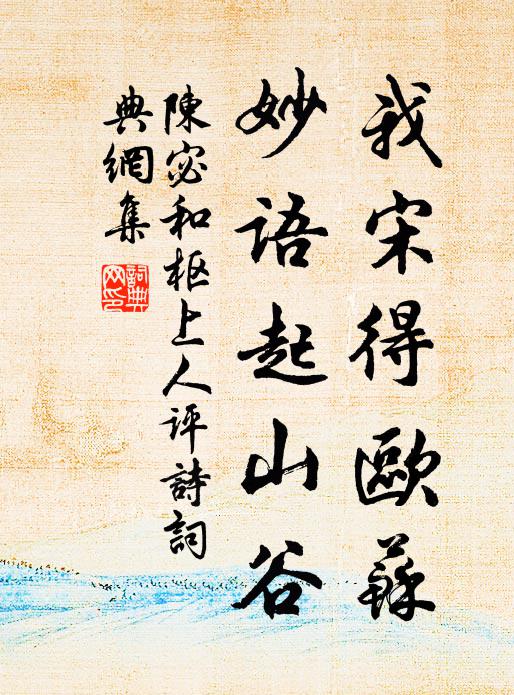 我宋得歐蘇
妙語起山谷
陳宓和枢上人评詩詞
典網集
詞典網印